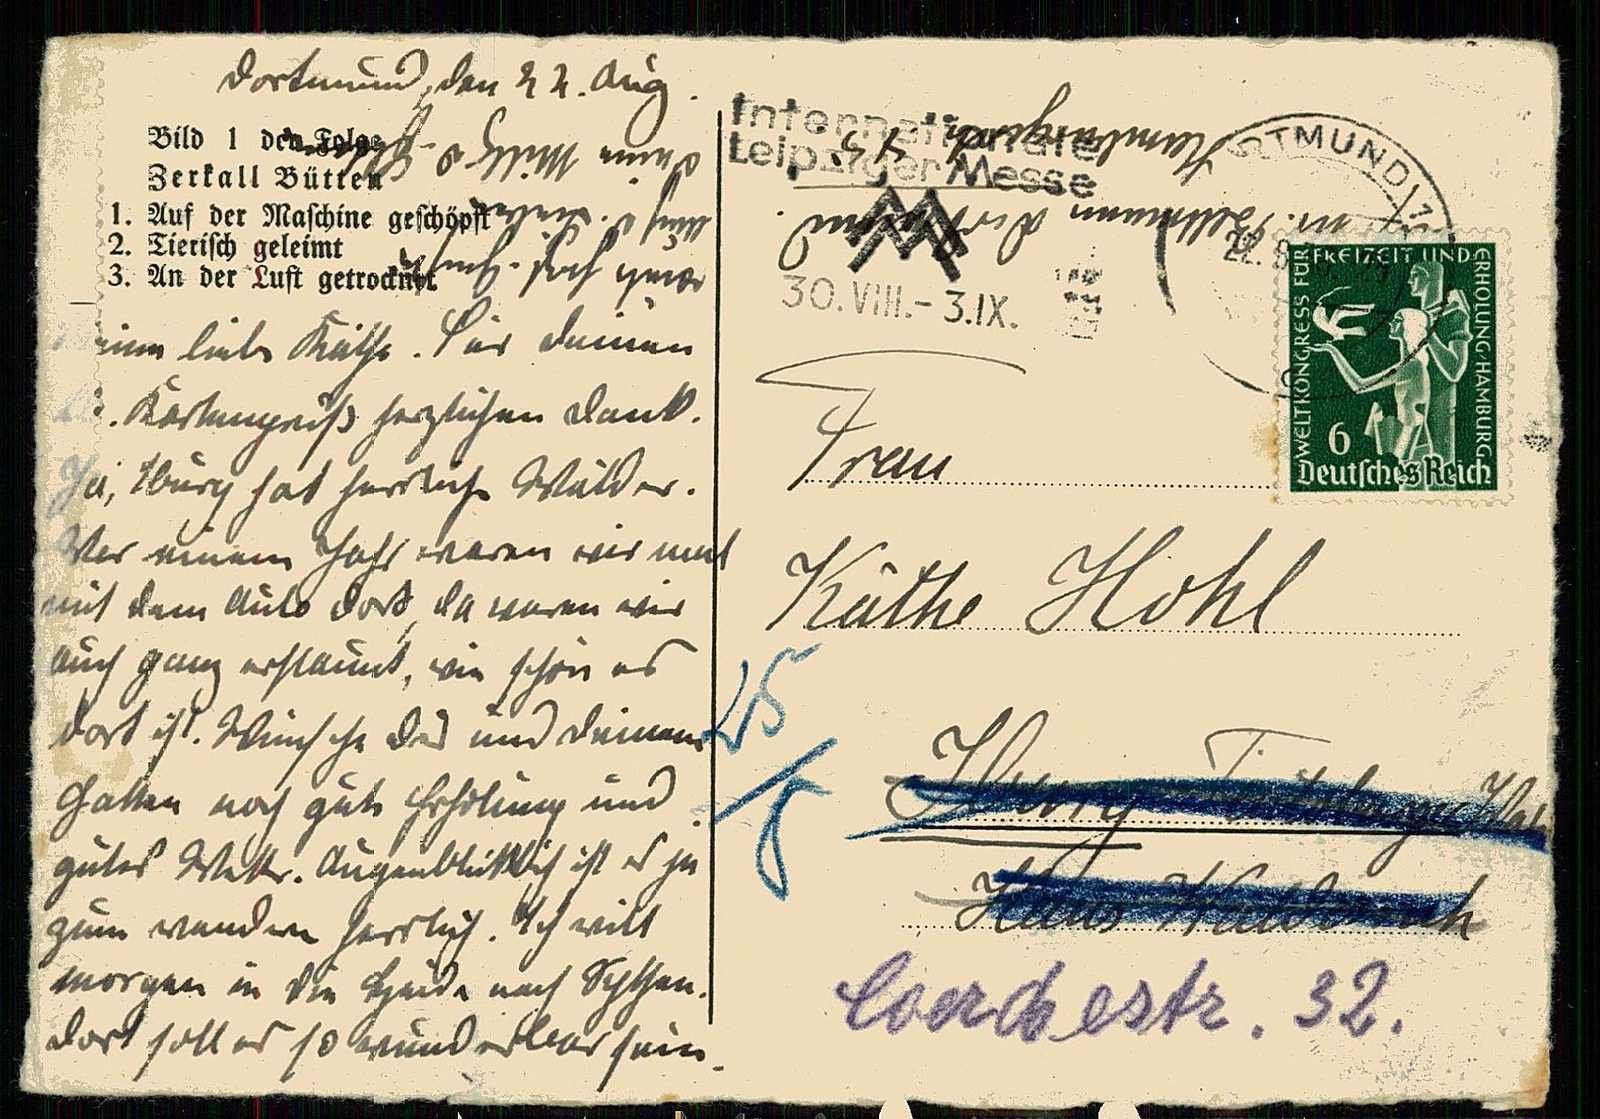 Dortmund, den 22. Aug.
Bild 1 der Folge
Zerkall Bütten
1. Auf der Maschine geschöpft
2. Tierisch geleimt
3. An der Luft getrocknet
liebe Käthe. Für deinen
Kartengruß herzlichen Dank.
Ja, Iburg hat herrliche Wälder.
Vor einem Jahr waren wir mal
mit dem Auto dort, da waren wir
auch ganz erstaunt, wie schön es
dort ist. Wünsche dir und deinem
Gatten noch gute Erholung und
gutes Wetter. Augenblicklich ist es ja
zum wandern herrlich. Ich will
morgen in die Heide nach Sythen.
Dort soll es so wunderbar sein.
Internationale
Leipziger Messe
30.VIII.-3.IX.
DORTMUND
22.8.
WELTKONGRESS FÜR FREIZEIT UND ERHOLUNG·HAMBURG
6
Deutsches Reich
Frau
Käthe Hohl
25/8
Iburg
Haus
Coerdestr. 32.